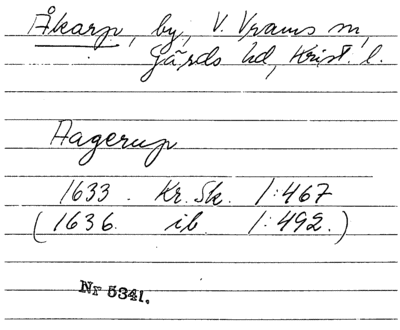 Åkarp, by, V. Vrams sn,
Gärds hd, Krist. l.
Aagerup
1633. Kr. Sk. 1:467
(1636. ib 1:492.)
Nr 5341.